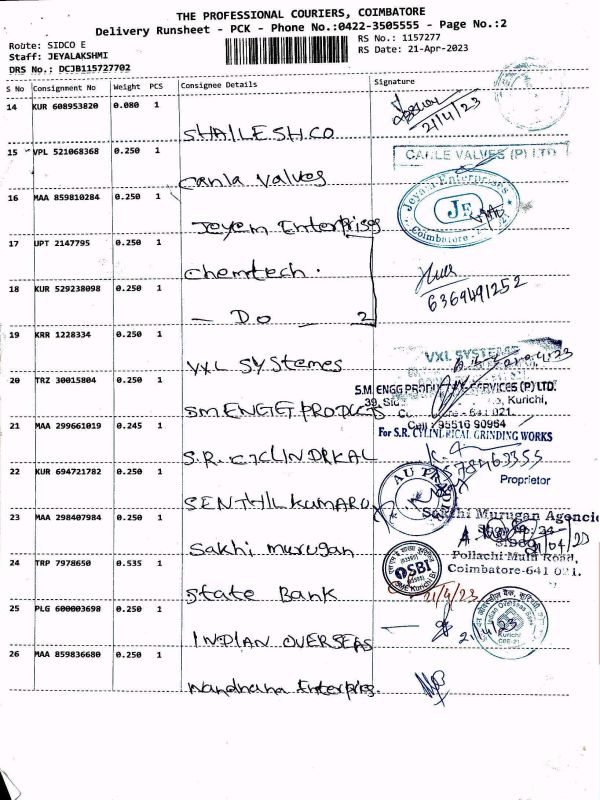 THE PROFESSIONAL COURIERS, COIMBATORE
Delivery Runsheet - PCK - Phone No.:0422-3505555 - Page No.:2
Route: SIDCO E
RS No.: 1157277
Staff: JEYALAKSHMI
RS Date: 21-Apr-2023
DRS No.: DCJB115727702
S No Consignment No Weight PCS Consignee Details Signature
14 KUR 608953820 0.080 1
21/4/23
SHAILESH.CO
15 VPL 521068368 0.250 1
CANLE VALVES (P) LTD
Canla Valves
16 MAA 859810284 0.250 1
Jeyam Enterprises
JE
Coimbatore
Jeyem Enterprises
17 UPT 2147795 0.250 1
Chemtech.
18 KUR 529238098 0.250 1
6369491252
— Do — 2
19 KRR 1228334 0.250 1
VXL SYSTEMS
VXL SYStemes
20 TRZ 30015804 0.250 1
S.M. ENGG PRODUCTS SERVICES (P) LTD.
39, Kurichi,
641 021.
SM ENGG PRODUCTS
21 MAA 299661019 0.245 1
Cell : 95516 90964
For S.R. CYLINDRICAL GRINDING WORKS
S.R. CYCLINDRKAL
22 KUR 694721782 0.250 1
Proprietor
SENTHILKUMARU
23 MAA 298407984 0.250 1
Sakthi Murugan Agencie
SIDCO
Pollachi Main Road,
Coimbatore-641 021.
Sakhi murugan
24 TRP 7978650 0.535 1
SBI
21/4/23
State Bank
25 PLG 600003698 0.250 1
Indian Overseas Bank
Kurichi
CBE-21
21/4/23
INDIAN OVERSEAS
26 MAA 859836680 0.250 1
Nandhana Enterpries.